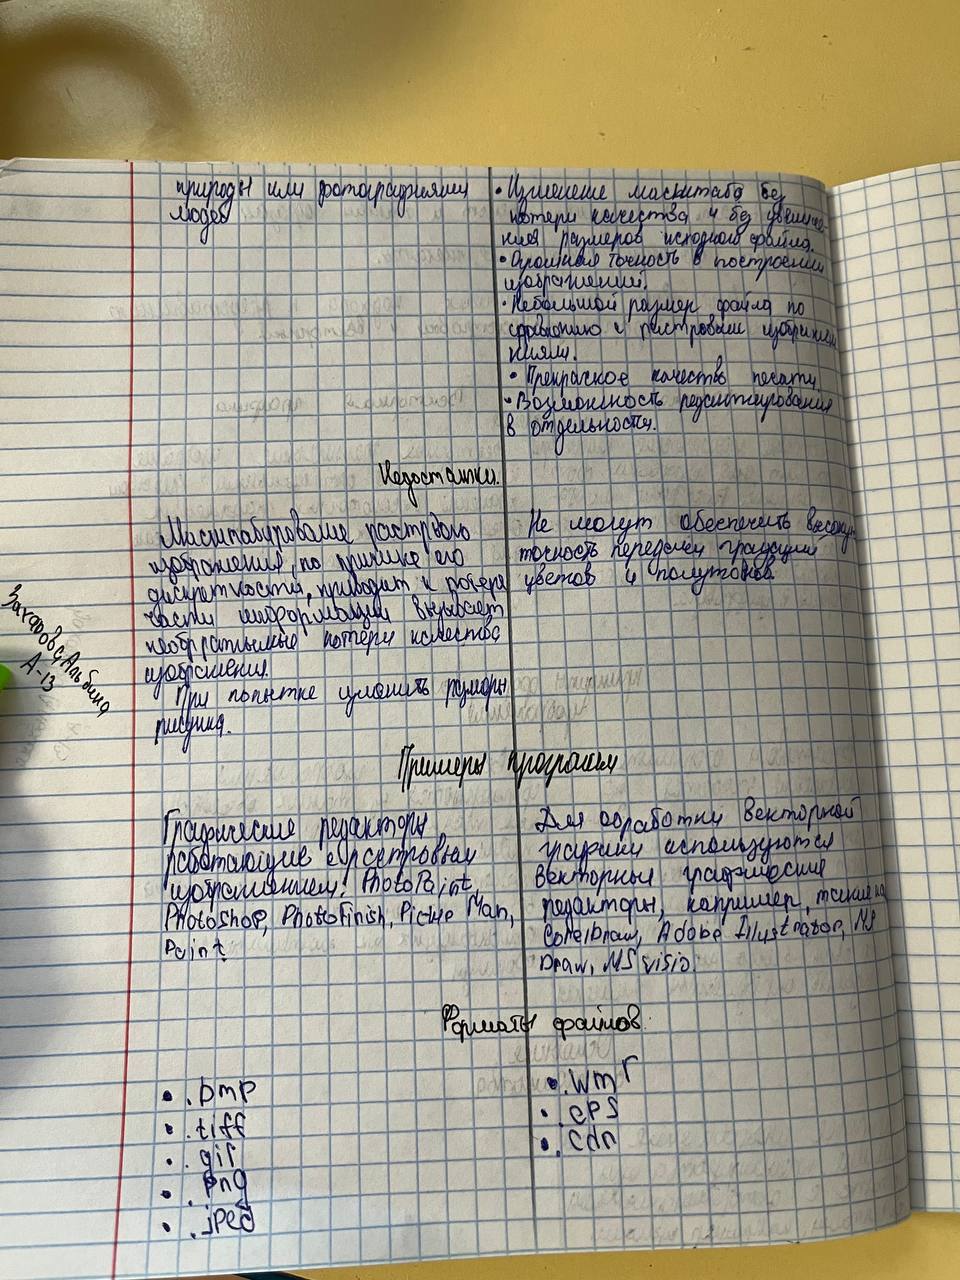 природы или фотографиями
людей
• Изменение масштаба без
потери качества и без увеличе-
ния размеров исходного файла.
• Огромная точность в построении
изображений.
• Небольшой размер файла по
сравнению с растровыми изображе
ниями.
• Прекрасное качество печати.
• Возможность редактирования
в отдельности.
Недостатки.
Масштабирование растрового
изображения, по причине его
дискретности, приводит к потере
части информации вызывает
необратимые потери качества
изображения.
При попытке размеры
рисунка.
Не могут обеспечить высокую
точность передачи градации
цветов и полутонов.
Захарова Альбина
А-13
Примеры программ
Графические редакторы
работающие с растровым
изображением: PhotoPaint,
Photoshop, PhotoFinish, Picture Man,
Paint
Для обработки векторной
графики используются
векторные графические
редакторы, например, такие как
CorelDraw, Adobe Illustrator, MS
Draw, MS Visio.
Форматы файлов.
• .bmp
• .tiff
• .gif
• .png
• .jpeg
• .wmf
• .eps
• .cdr